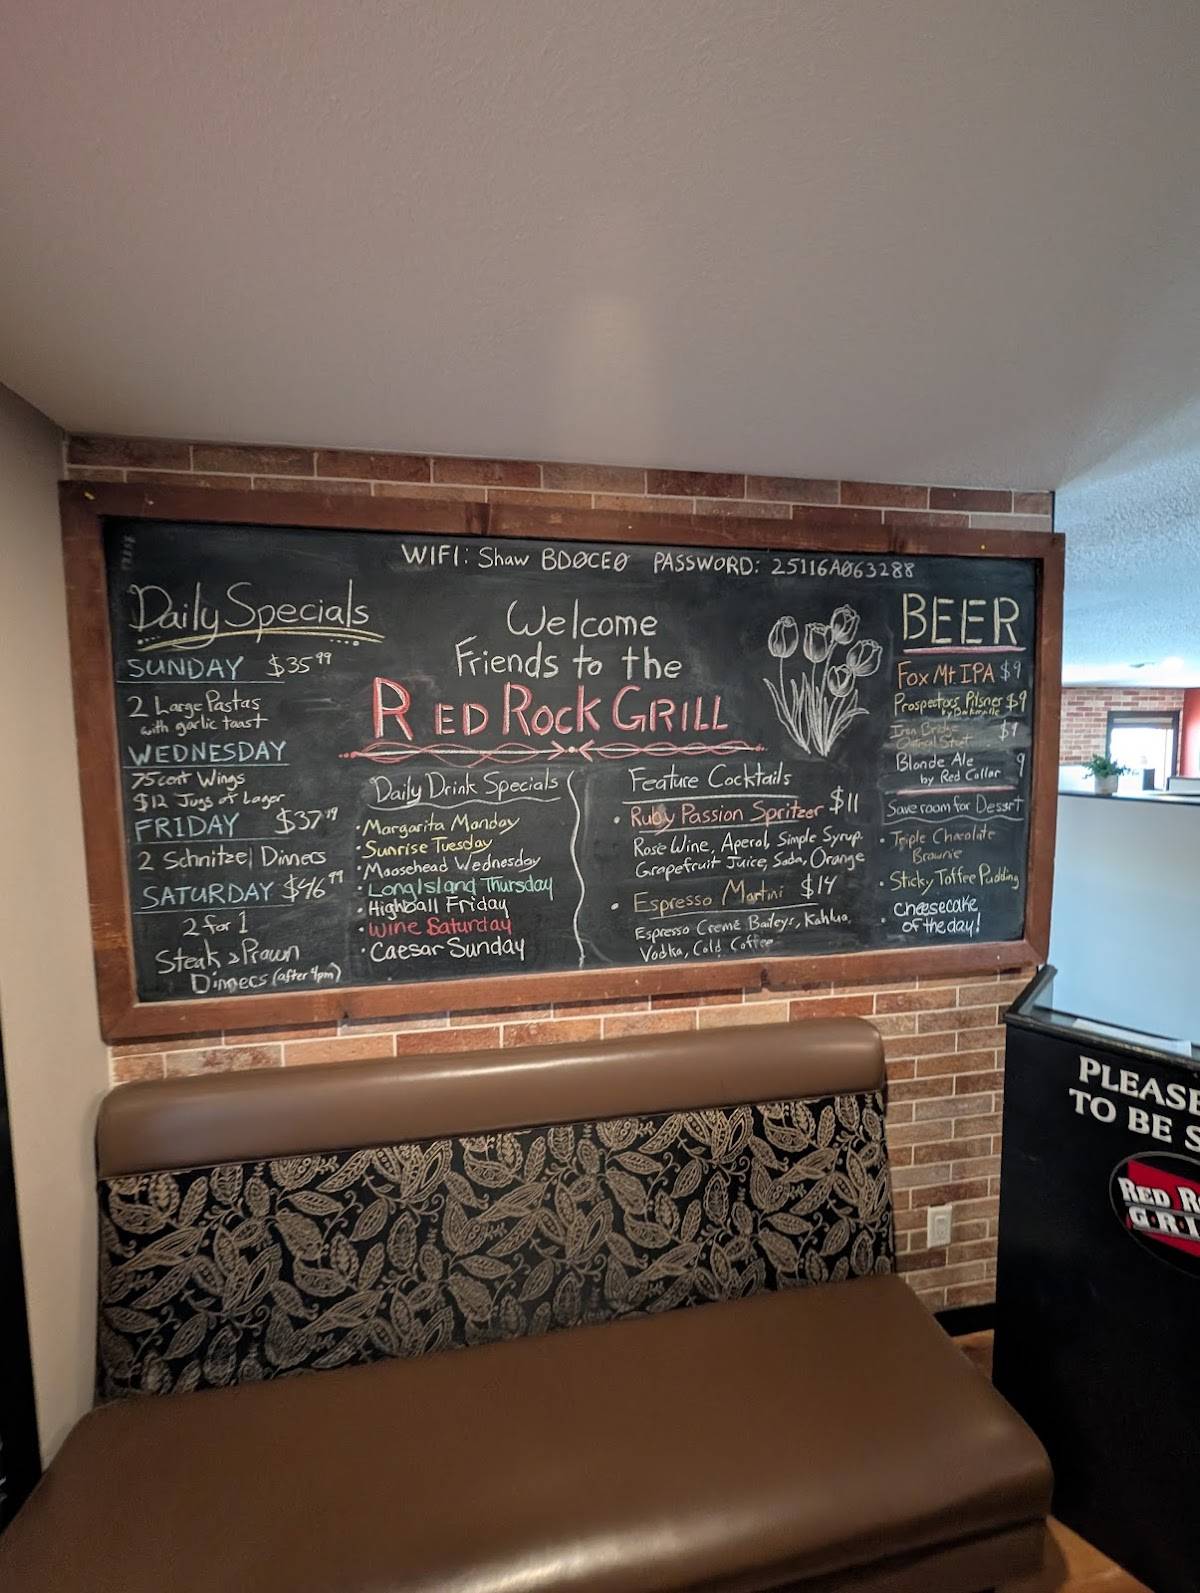 WIFI: Shaw BDØCEØ PASSWORD: 25116AØ63288
Daily Specials
SUNDAY $35.99
2 Large Pastas
with garlic toast
WEDNESDAY
75cent Wings
$12 Jugs of Lager
FRIDAY $37.99
2 Schnitzel Dinners
SATURDAY $46.99
2 for 1
Steak & Prawn
Dinners (after 4pm)
Welcome
Friends to the
RED ROCK GRILL
Daily Drink Specials
• Margarita Monday
• Sunrise Tuesday
• Moosehead Wednesday
• Long Island Thursday
• Highball Friday
• Wine Saturday
• Caesar Sunday
Feature Cocktails
• Ruby Passion Spritzer $11
Rose Wine, Aperol, Simple Syrup.
Grapefruit Juice, Soda, Orange
• Espresso Martini $14
Espresso Creme Baileys, Kahlua,
Vodka, Cold Coffee
BEER
Fox Mt IPA $9
Prospectors Pilsner $9
by
Oatmeal Stout $9
Blonde Ale 9
by Red Collar
Save room for Dessert
• Triple Chocolate
Brownie
• Sticky Toffee Pudding
• cheesecake
of the day!
PLEASE
TO BE S
RED R
G·R